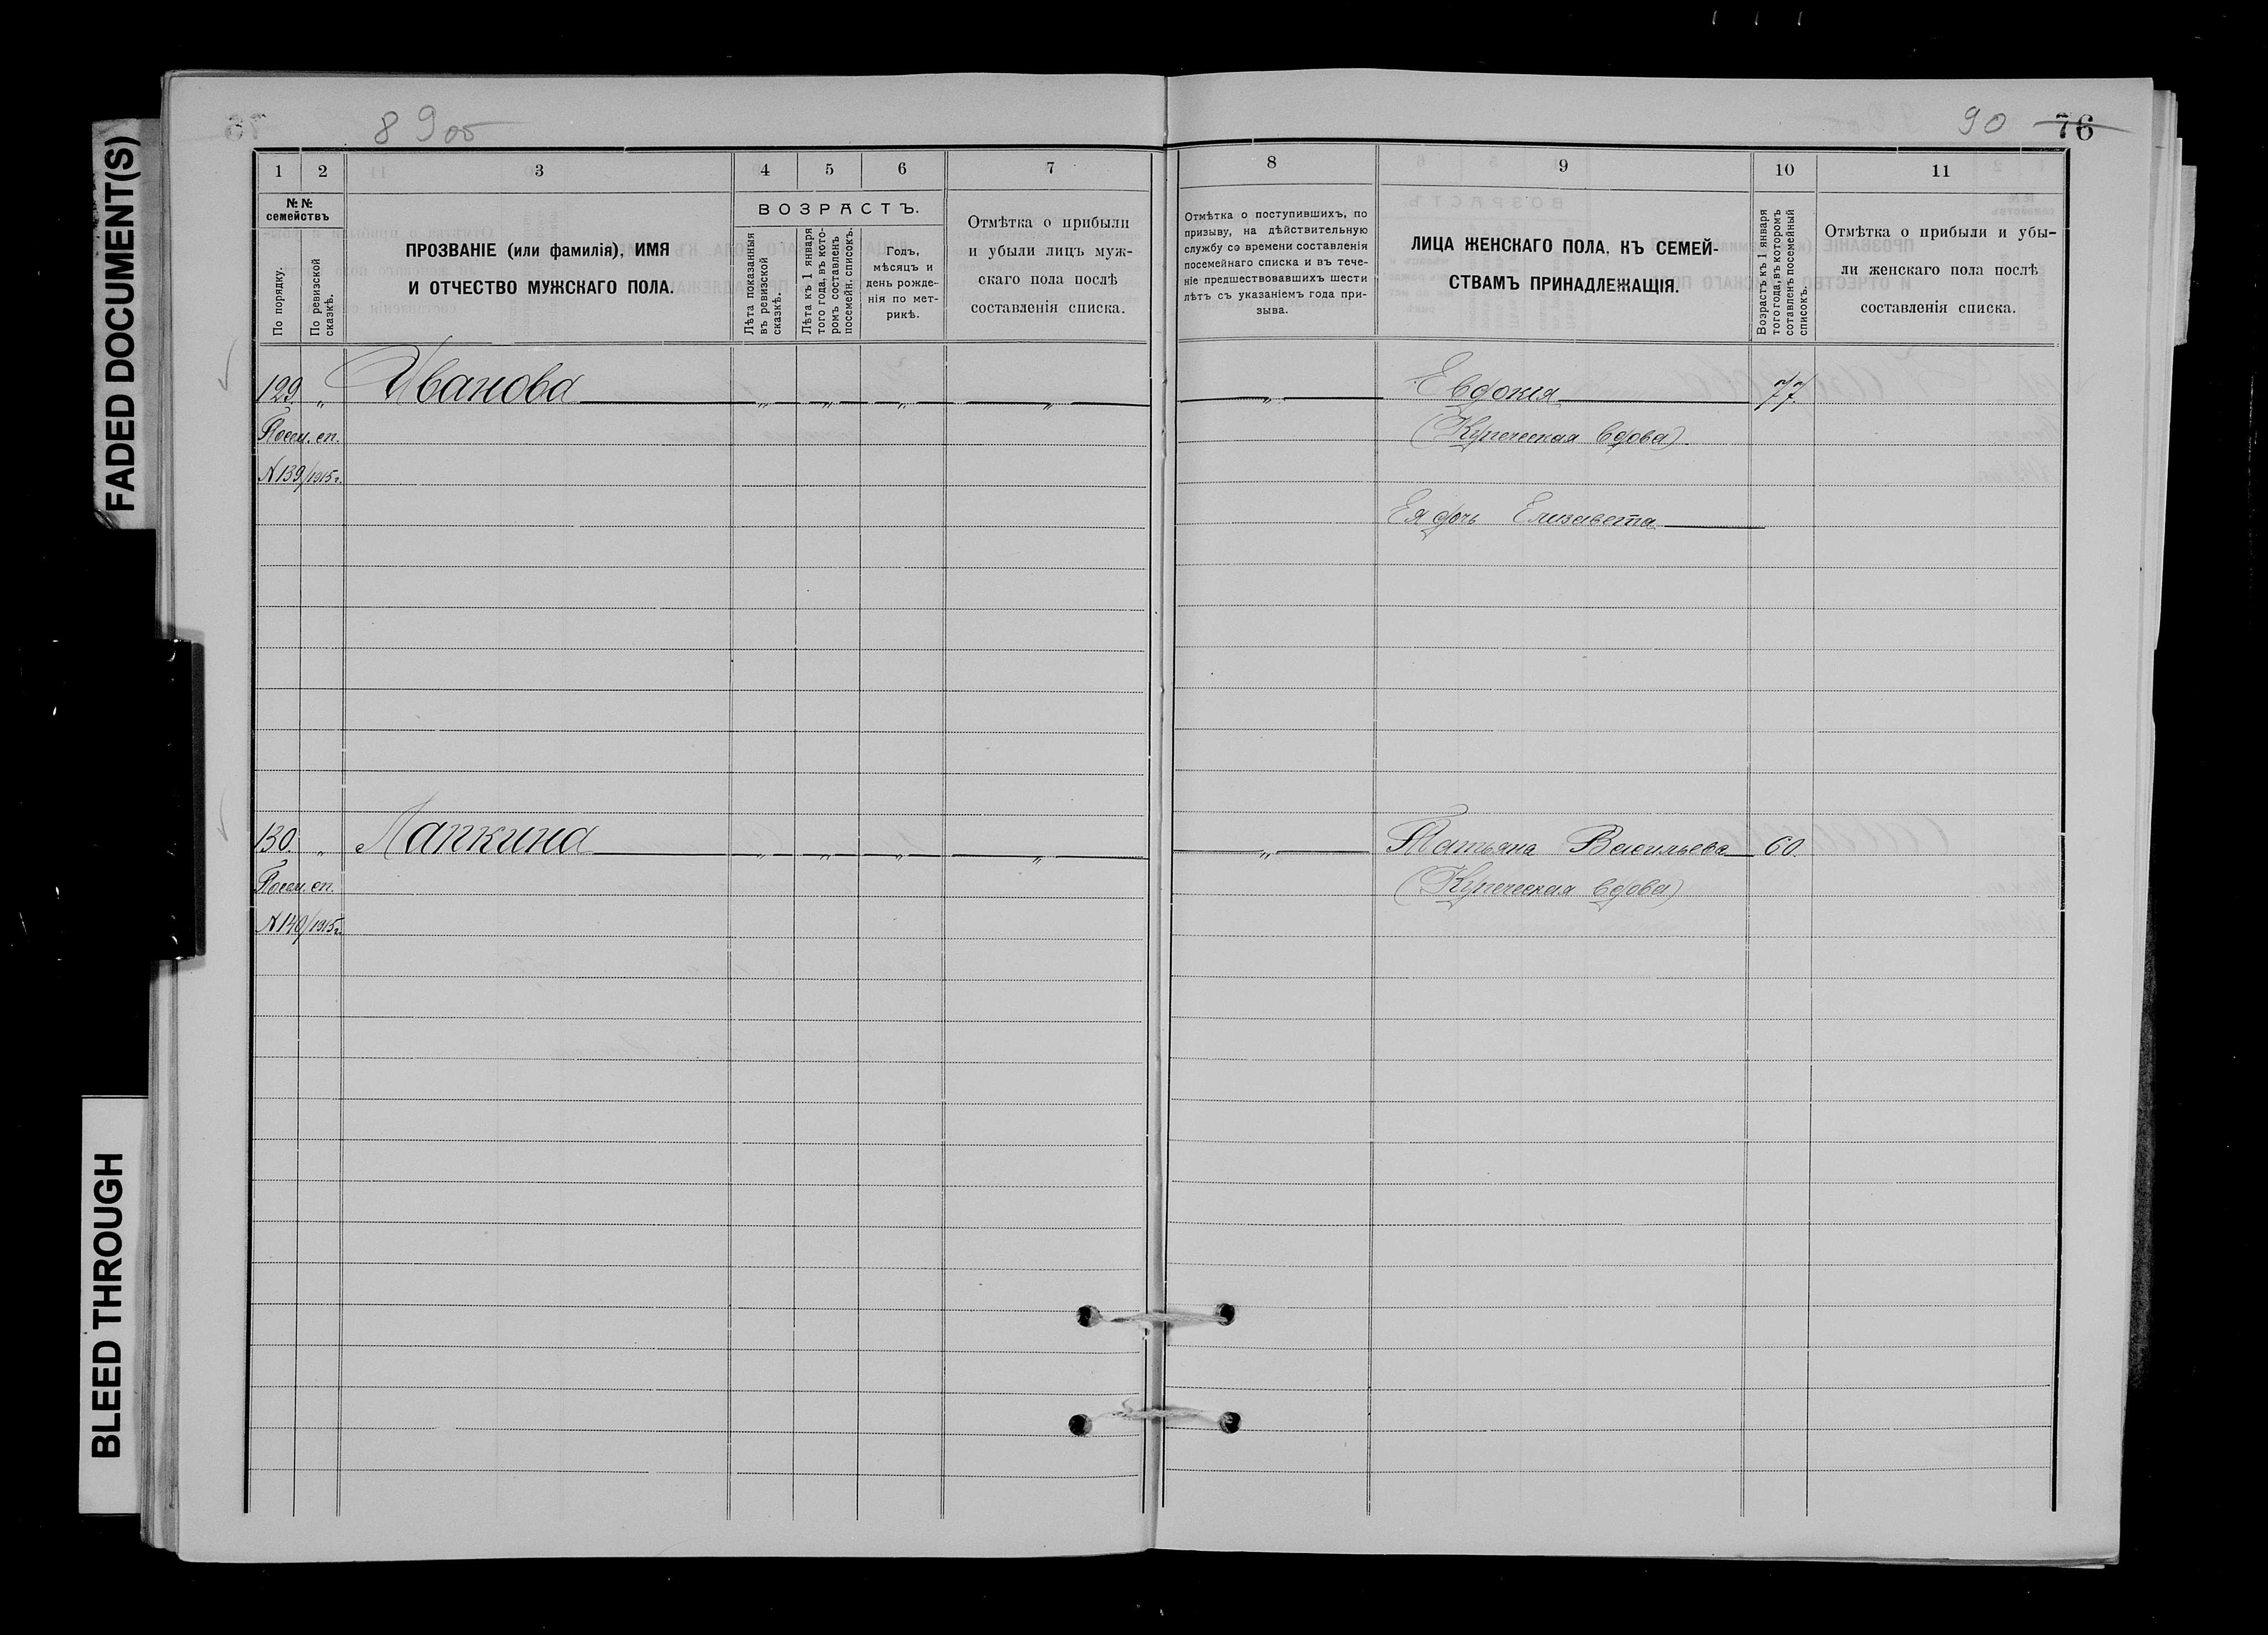 FADED DOCUMENT(S)
BLEED THROUGH
89об
90 76
1 2 3 4 5 6 7
№№ семействъ
По порядку.
По ревизской сказкѣ.
ПРОЗВАНІЕ (или фамилія), ИМЯ
И ОТЧЕСТВО МУЖСКАГО ПОЛА.
ВОЗРАСТЪ.
Лѣта показанныя въ ревизской сказкѣ.
Лѣта къ 1 января того года, въ которомъ составленъ посемейн. списокъ.
Годъ,
мѣсяцъ и
день рожде-
нія по мет-
рикѣ.
Отмѣтка о прибыли
и убыли лицъ муж-
скаго пола послѣ
составленія списка.
8 9 10 11
Отмѣтка о поступившихъ, по
призыву, на дѣйствительную
службу со времени составленія
посемейнаго списка и въ тече-
ніе предшествовавшихъ шести
лѣтъ съ указаніемъ года при-
зыва.
ЛИЦА ЖЕНСКАГО ПОЛА, КЪ СЕМЕЙ-
СТВАМЪ ПРИНАДЛЕЖАЩІЯ.
Возрастъ къ 1 января
того года, въ которомъ
сотавленъ посемейный
списокъ.
Отмѣтка о прибыли и убы-
ли женскаго пола послѣ
составленія списка.
129. „ Иванова „ „ „ „ „ Евдокія 77.
Посем. сп. (Купеческая вдова)
№139/1915г.
Ея дочь Елизавета
130. „ Лапкина „ „ „ „ „ Татьяна Васильева 60.
Посем. сп. (Купеческая вдова)
№140/1915г.